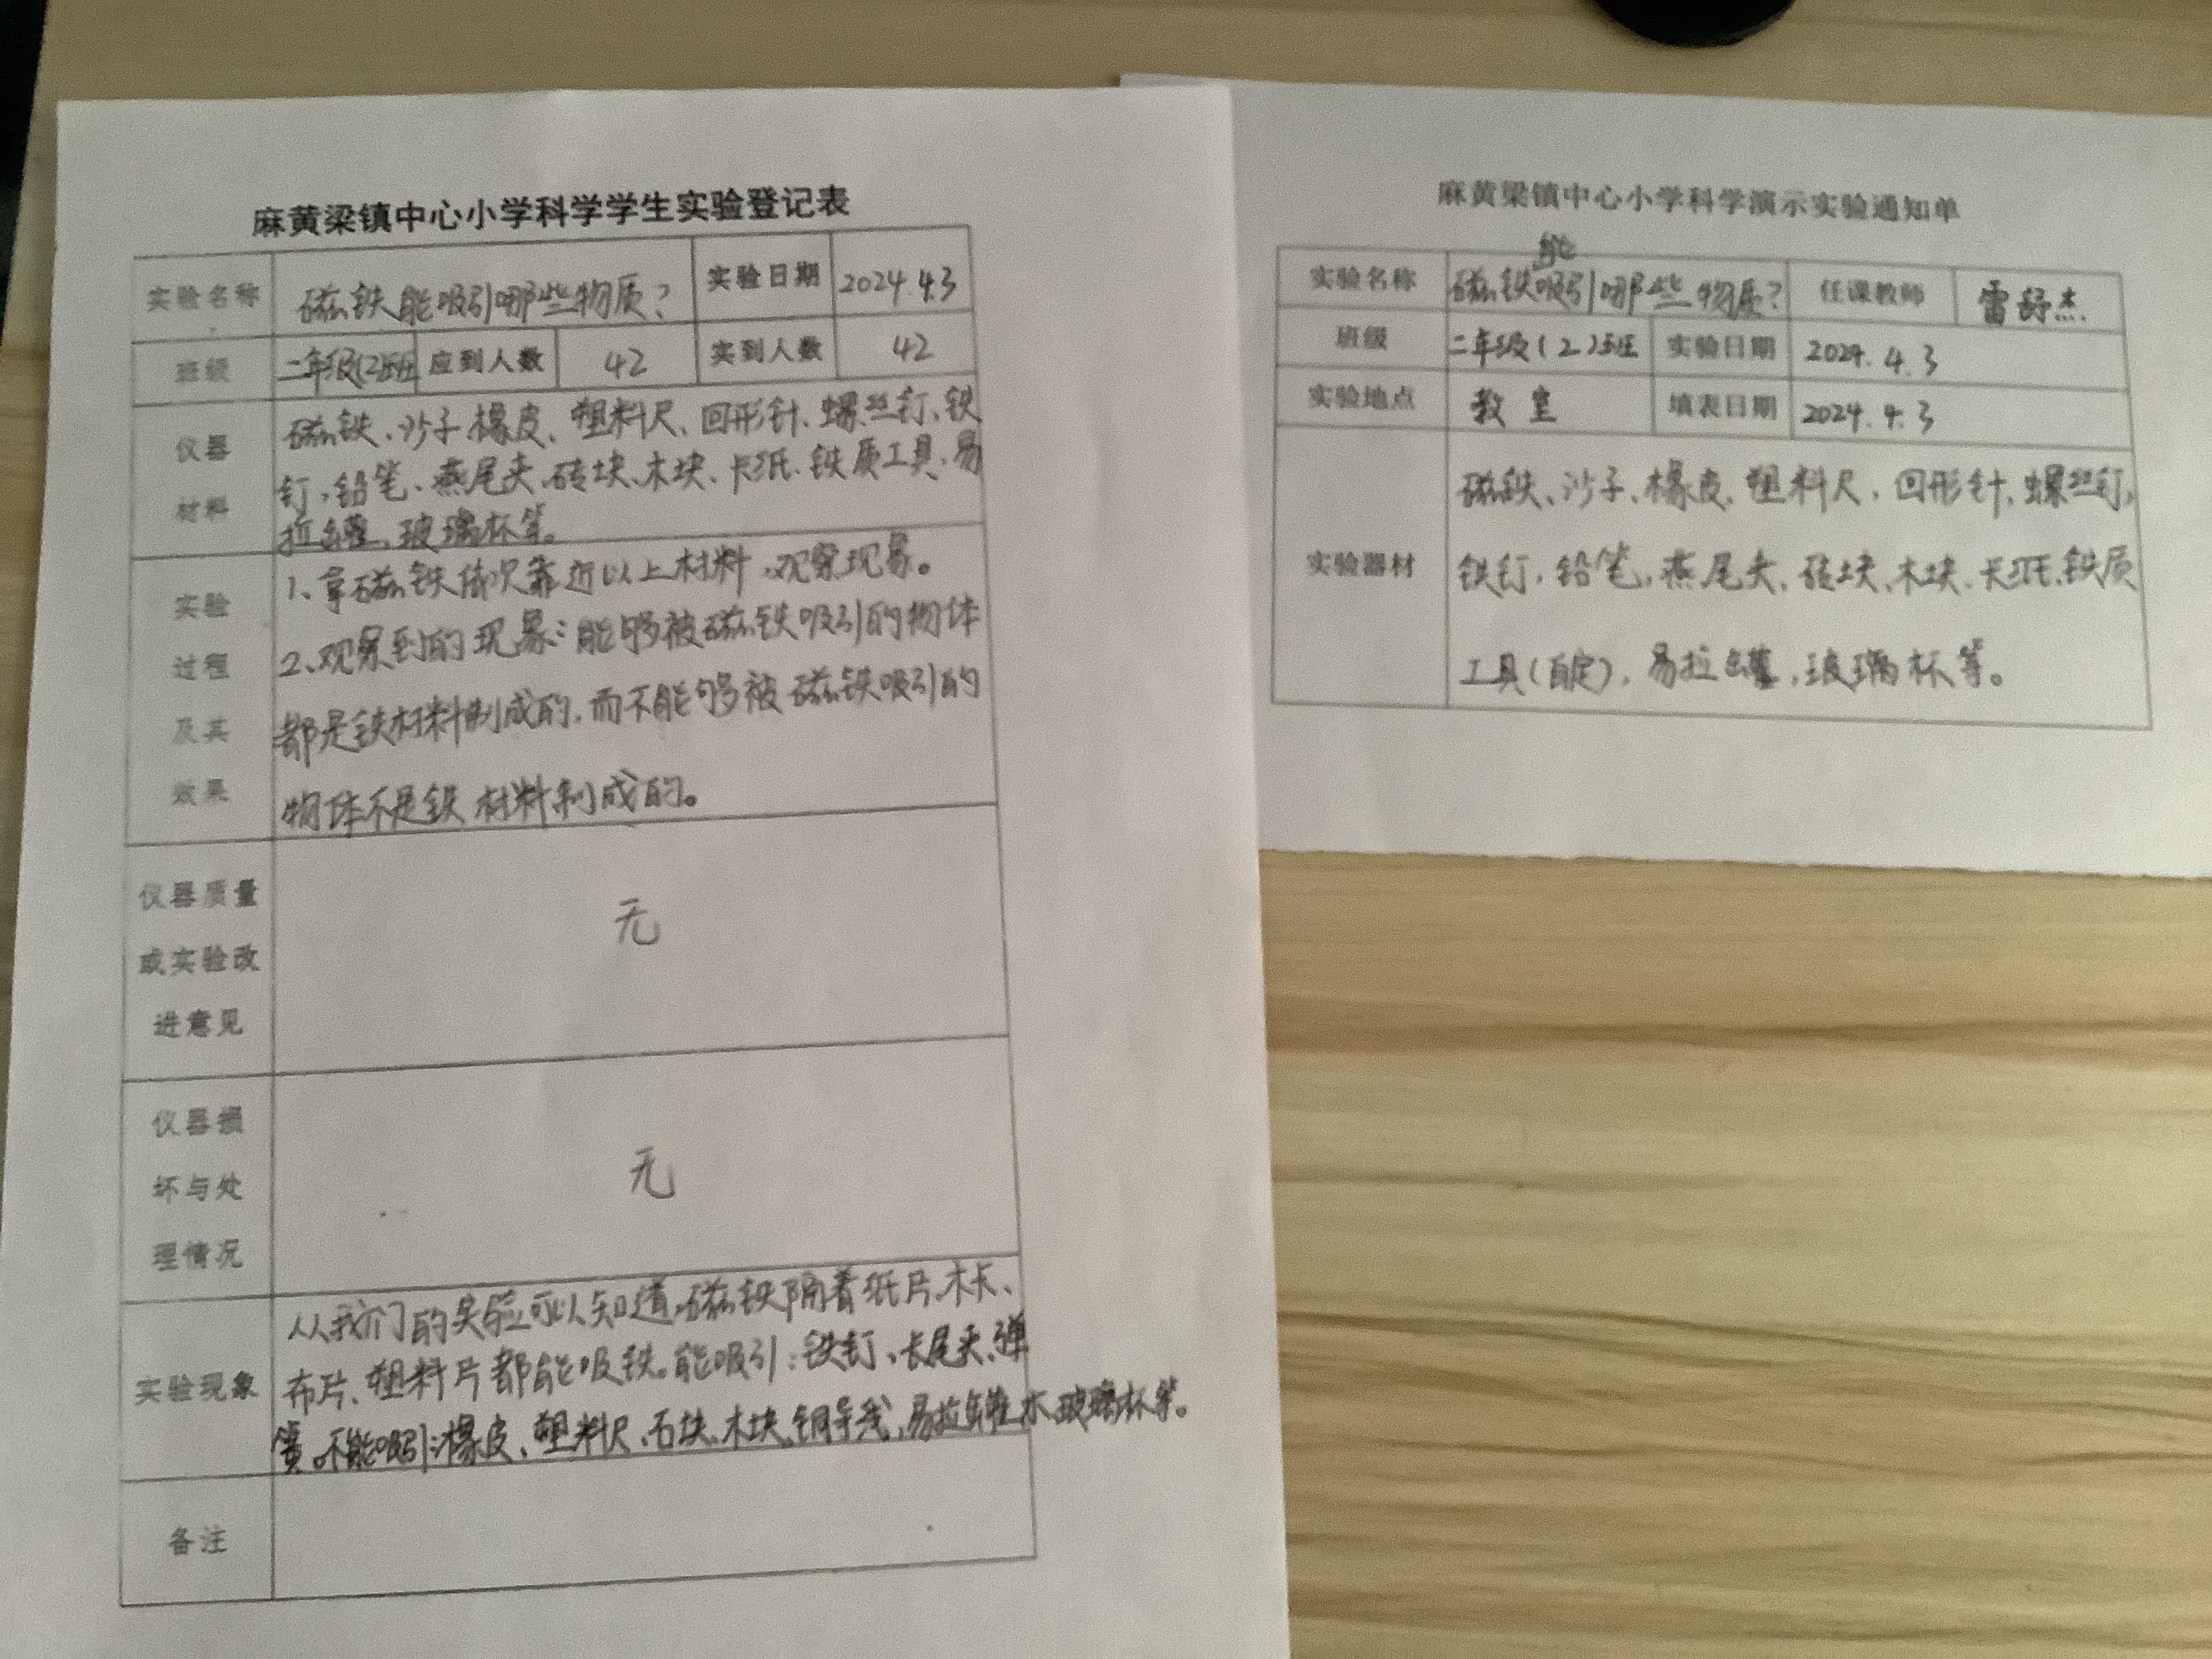 麻黄梁镇中心小学科学学生实验登记表
实验名称 磁铁能吸引哪些物质? 实验日期 2024.4.3
班级 二年级(2)班 应到人数 42 实到人数 42
仪器
材料
磁铁、沙子、橡皮、塑料尺、回形针、螺丝钉、铁
钉、铅笔、燕尾夹、砖块、木块、卡纸、铁质工具、易
拉罐、玻璃杯等。
实验
过程
及其
效果
1、拿磁铁依次靠近以上材料,观察现象。
2、观察到的现象:能够被磁铁吸引的物体
都是铁材料制成的,而不能够被磁铁吸引的
物体不是铁材料制成的。
仪器质量
或实验改
进意见
无
仪器损
坏与处
理情况
无
实验现象
从我们的实验可以知道,磁铁隔着纸片、木卡、
布片、塑料片都能吸铁。能吸引:铁钉、长尾夹、弹
簧。不能吸引:橡皮、塑料尺、石块、木块、铜导线,易拉罐、水、玻璃杯等。
备注
麻黄梁镇中心小学科学演示实验通知单
实验名称 磁铁能吸引哪些物质? 任课教师 雷舒杰
班级 二年级(2)班 实验日期 2024.4.3
实验地点 教室 填表日期 2024.4.3
实验器材
磁铁、沙子、橡皮、塑料尺、回形针、螺丝钉,
铁钉,铅笔,燕尾夹、砖块、木块、卡纸、铁质
工具(自定),易拉罐,玻璃杯等。